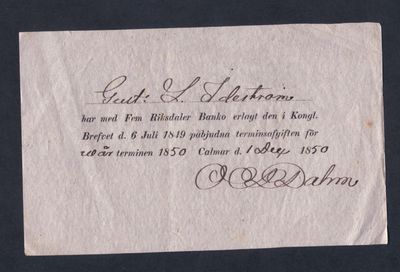 Gust: L. Ideström
har med Fem Riksdaler Banko erlagt den i Kongl.
Brefvet d. 6 Juli 1849 påbjudna terminsafgiften för
wår terminen 1850 Calmar d. 1 Dec 1850
Dahm